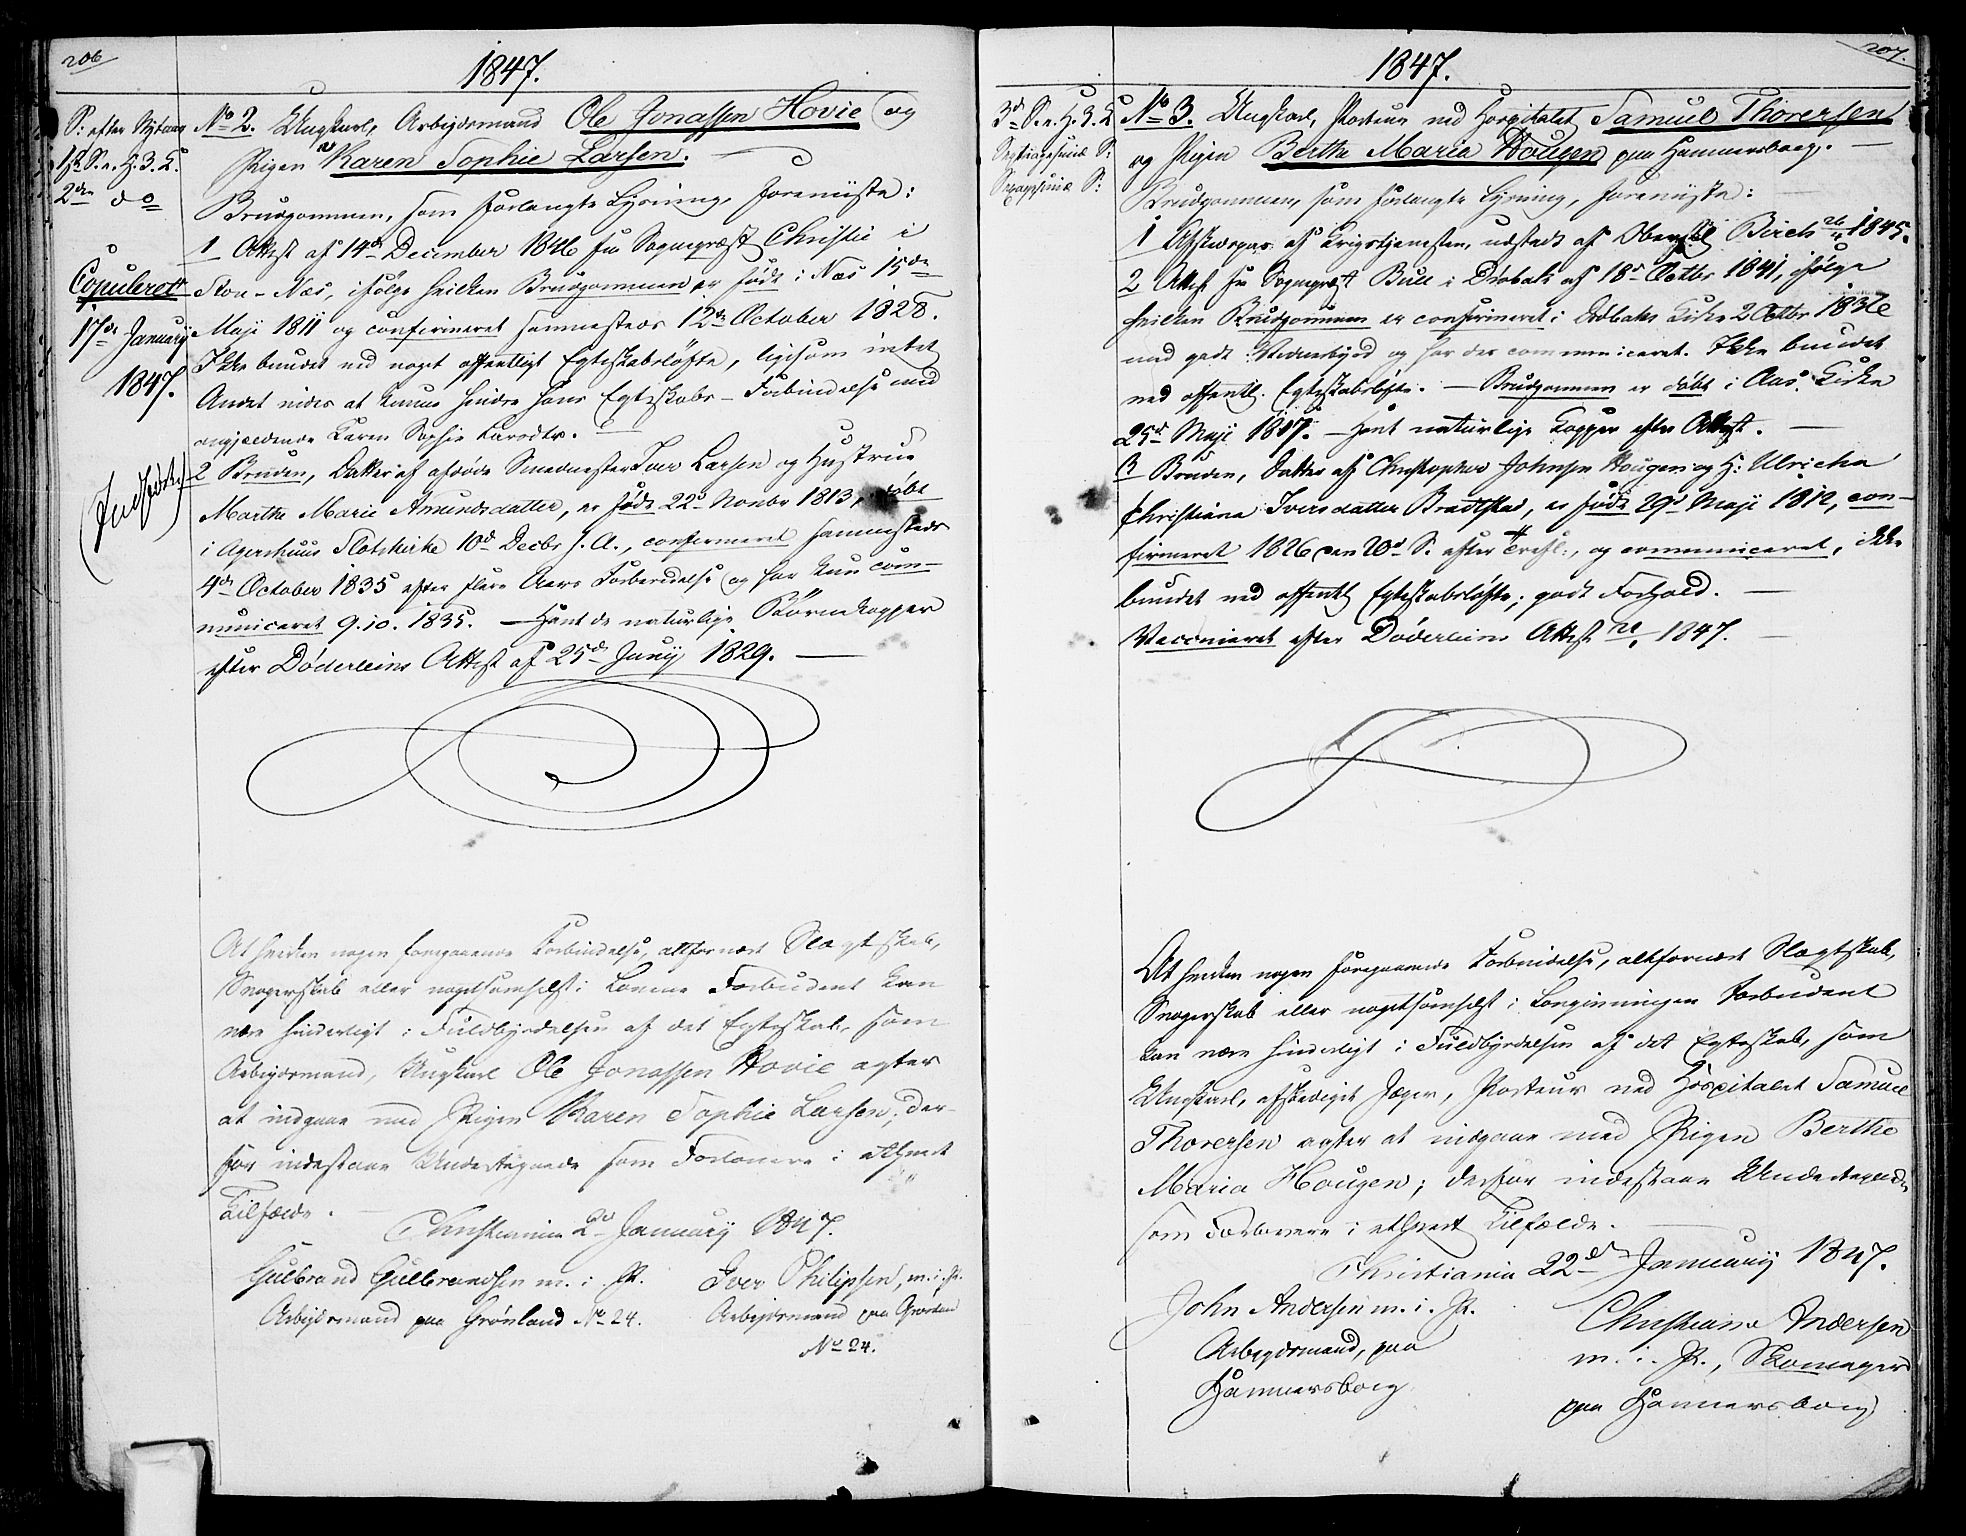 206
1847.
S: efter Nytaar
1ste S. e. H. 3. K.
2den do
Copuleret
17de January
1847.
(Indført.)
No 2. Ungkarl, Arbeidsmand Ole Jonassen Hovie og
Pigen Karen Sophie Larsen.
Brudgommen, som forlangte Lysning, foreviiste:
1 Attest af 14de December 1846 fra Sognepræst Christie i
Næs, ifølge hvilken Brudgommen er født i Næs 15de
Maji 1811 og confirmeret sammesteds 12te October 1828.
Ikke bundet ved noget offentligt Egteskabsløfte, ligesom intet
Andet vides at kunne hindre hans Egteskabs-Forbindelse med
angjældende Karen Sophie Larsdtr.
2 Bruden, Datter af afdøde Smedmester Iver Larsen og Hustrue
Marthe Marie Amundsdatter, er født 22d Novbr 1813, døbt
i Agershuus Slotskirke 10d Decbr s. A., confirmeret sammesteds
4de October 1835 efter flere Aars Forberedelse og har kun com-
municeret 9.10.1835. - Havt de naturlige Børnekopper
efter Døderleins Attest af 25de Juny 1829.
At hverken nogen foregaaende Forbindelse, altfornært Slægtskab,
Svogerskab eller nogetsomhelst i Lovene Forbudent kan
være hinderligt i Fuldbyrdelsen af det Egteskab, som
Arbeidsmand, Ungkarl Ole Jonassen Hovie agter
at indgaae med Pigen Karen Sophie Larsen, der-
for indestaae Undertegnede som Forlovere i ethvert
Tilfælde.
Christiania 2d January 1847.
Gulbrand Gulbrandsen m. i. P.
Arbeidsmand paa Grønland No 24.
Iver Philipsen, m. i. P.
Arbeidsmand paa Grønland
No 24.
207.
1847.
3d S. e. H. 3. K.
Septuagesimæ S:
Sexagesimæ S:
No 3. Ungkarl, Porteur ved Hospitalet Samuel Thoresen
og Pigen Berthe Maria Hougen paa Hammersborg.
Brudgommen, som forlangte Lysning, foreviiste:
1 Afskedspas af Krigstjenesten, udstedt af Oberstl Birch 26/4 1845.
2 Attest fra Sognepræst Bull i Drøbak af 18d Octbr 1841, ifølge
hvilken Brudgommen er confirmeret i Drøbaks Kirke 2 Octbr 1836
med godt Vidnesbyrd og har der communiceret. Ikke bundet
ved offentl. Egteskabsløfte. - Brudgommen er døbt i Aas Kirke
25d Maji 1817. - Havt naturlige Kopper efter Attest.
3 Bruden, Datter af Christopher Johnsen Hougen og H: Ulricha
Christiana Iversdatter Bradtstad, er født 29d Maji 1812, con-
firmeret 1826 den 20d S. efter Trefl:, og communiceret, ikke
bundet ved offentl Egteskabsløfte; godt Forhold.
Vaccineret efter Døderleins Attest 1847.
At hverken nogen foregaaende Forbindelse, altfornært Slægtskab,
Svogerskab eller nogetsomhelst i Lovgivningen Forbudent
kan være hinderligt i Fuldbyrdelsen af det Egteskab, som
Ungkarl, afskediget Jæger, Porteur ved Hospitalet Samuel
Thoresen agter at indgaae med Pigen Berthe
Maria Hougen; derfor indestaae Undertegnede
som Forlovere i ethvert Tilfælde.
Christiania 22de January 1847.
John Andersen m. i. P.
Arbeidsmand, paa
Hammersborg
Christian Andersen
m. i. P., Skomager
paa Hammersborg